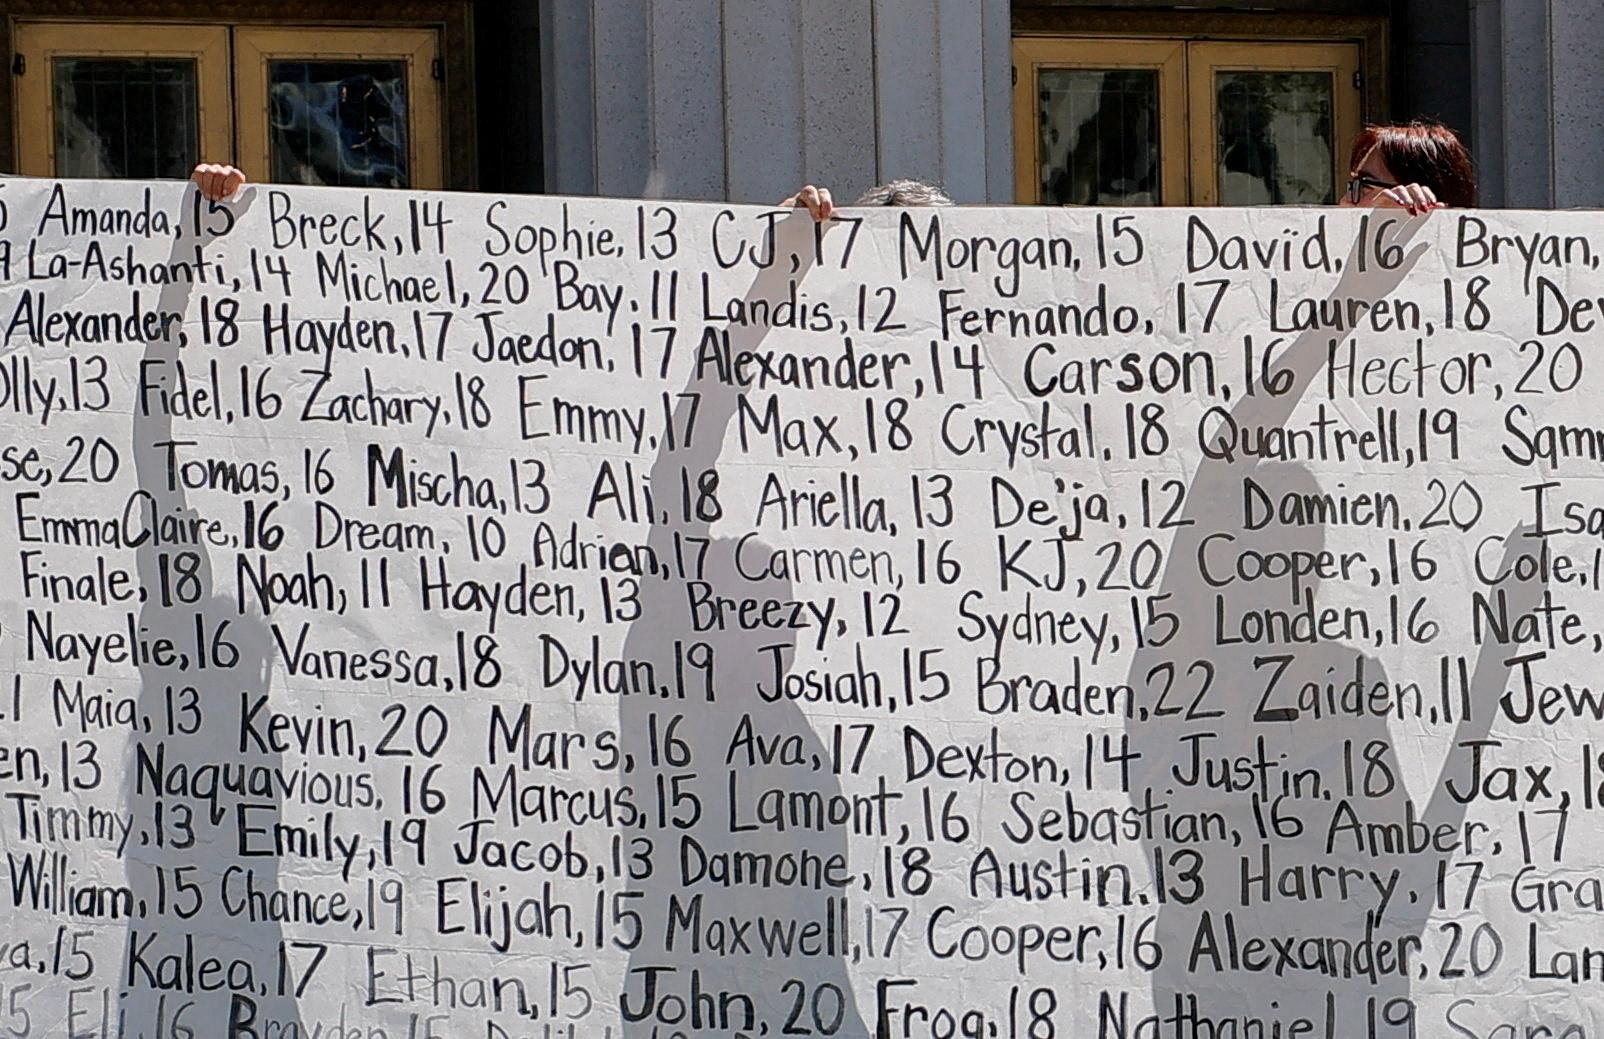 Amanda, 15 Breck, 14 Sophie, 13 CJ, 17 Morgan, 15 David, 16 Bryan,
La-Ashanti, 14 Michael, 20 Bay, 11 Landis, 12 Fernando, 17 Lauren, 18
Alexander, 18 Hayden, 17 Jaedon, 17 Alexander, 14 Carson, 16 Hector, 20
13 Fidel, 16 Zachary, 18 Emmy, 17 Max, 18 Crystal, 18 Quantrell, 19
20 Tomas, 16 Mischa, 13 Ali, 18 Ariella, 13 De'ja, 12 Damien, 20
EmmaClaire, 16 Dream, 10 Adrian, 17 Carmen, 16 KJ, 20 Cooper, 16 Cole,
Finale, 18 Noah, 11 Hayden, 13 Breezy, 12 Sydney, 15 Londen, 16 Nate,
Nayelie, 16 Vanessa, 18 Dylan, 19 Josiah, 15 Braden, 22 Zaiden, 11
Maia, 13 Kevin, 20 Mars, 16 Ava, 17 Dexton, 14 Justin, 18 Jax,
13 Naquavious, 16 Marcus, 15 Lamont, 16 Sebastian, 16 Amber, 17
Timmy, 13 Emily, 19 Jacob, 13 Damone, 18 Austin, 13 Harry, 17
William, 15 Chance, 19 Elijah, 15 Maxwell, 17 Cooper, 16 Alexander, 20
15 Kalea, 17 Ethan, 15 John, 20 Frog, 18 Nathaniel, 19
Eli, 16 Brayden, 15